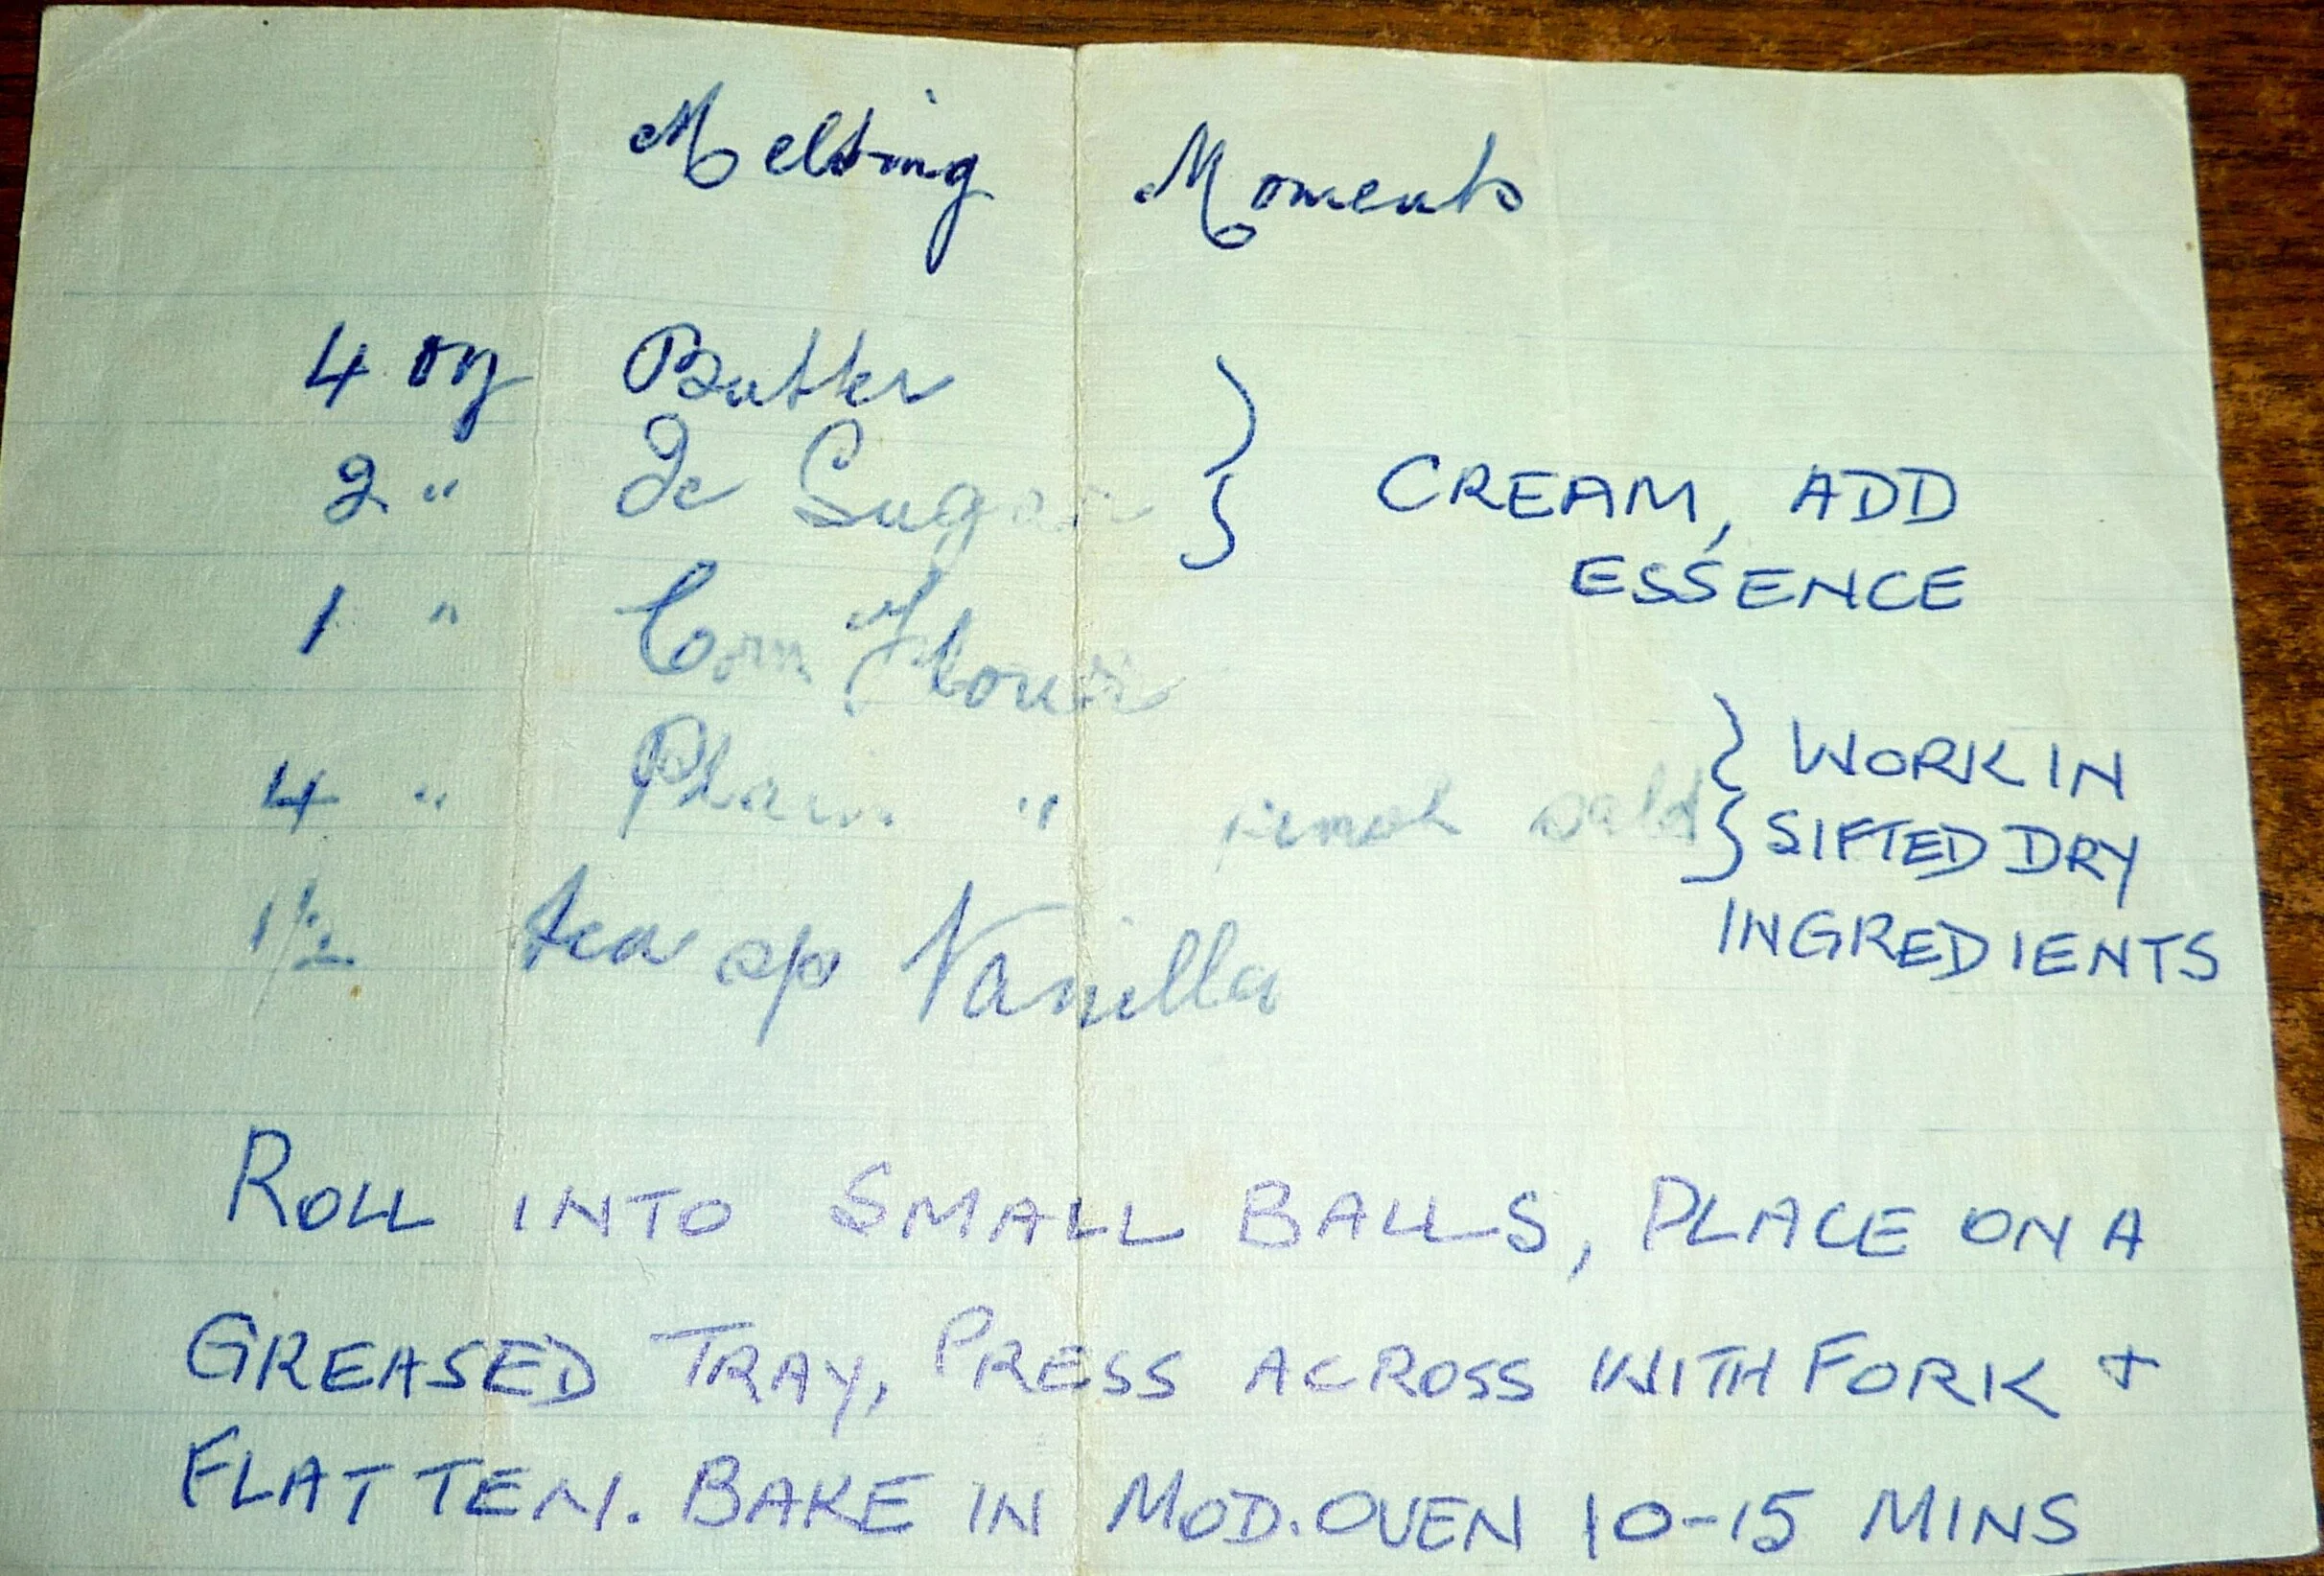 Melting Moments
4 oz Butter
2 " Ic Sugar
} CREAM, ADD
ESSENCE
1 " Corn Flour
4 " Plain " pinch salt
} WORK IN
SIFTED DRY
INGREDIENTS
1/2 tea sp Vanilla
ROLL INTO SMALL BALLS, PLACE ON A
GREASED TRAY, PRESS ACROSS WITH FORK +
FLATTEN. BAKE IN MOD. OVEN 10-15 MINS